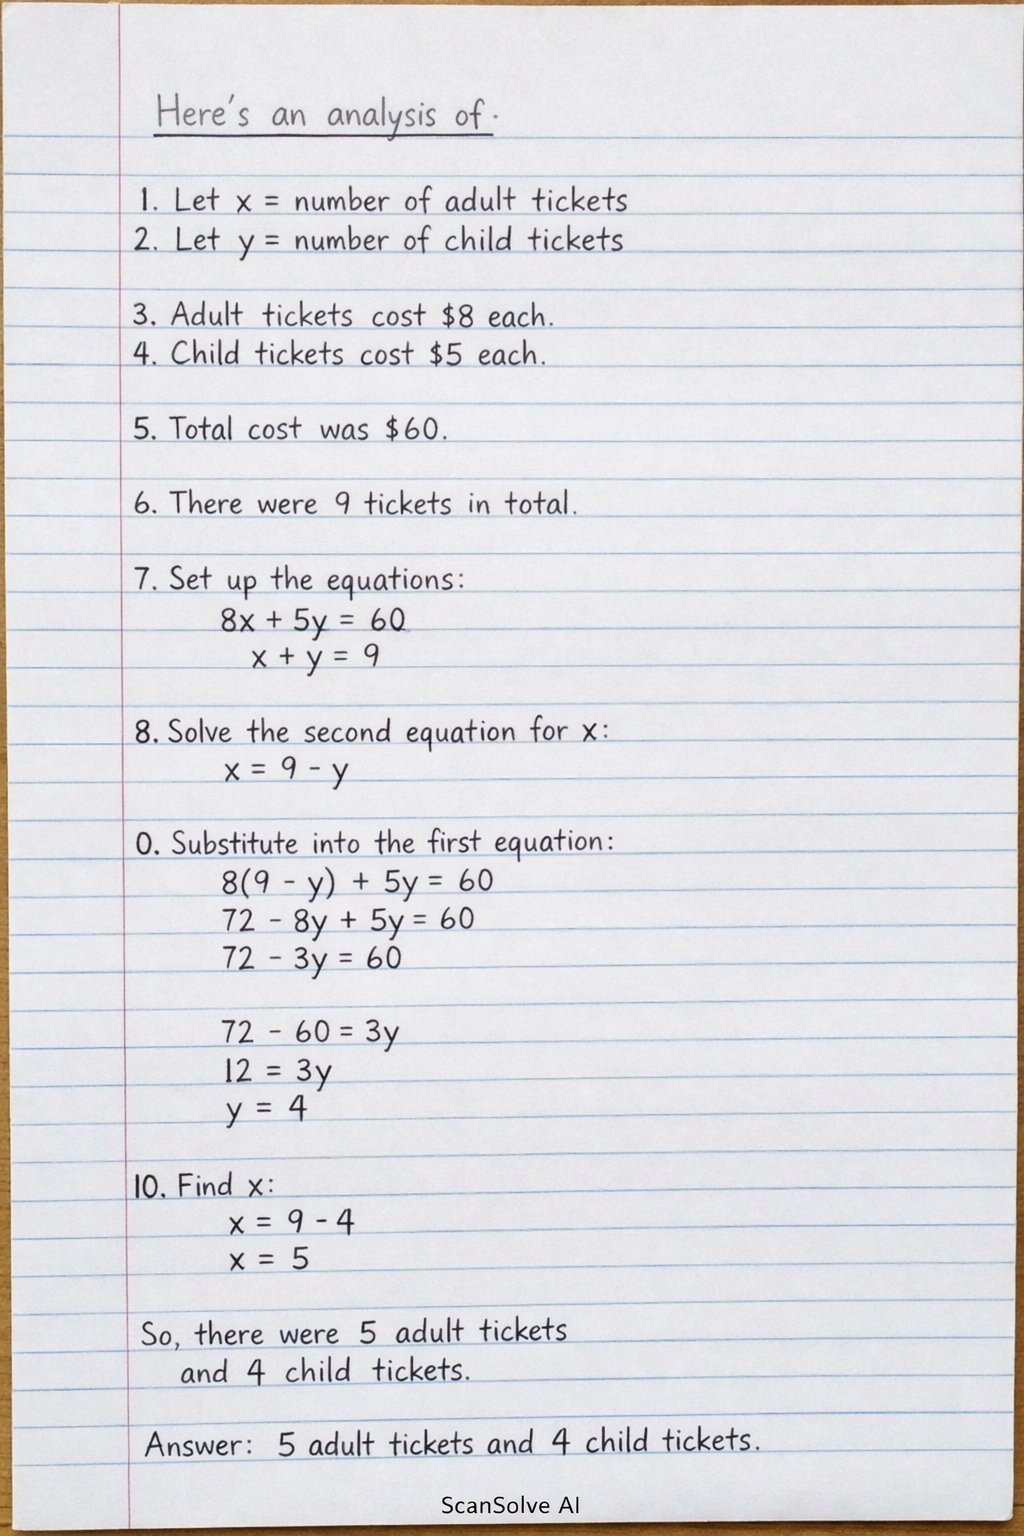 Here's an analysis of.
1. Let x = number of adult tickets
2. Let y = number of child tickets
3. Adult tickets cost $8 each.
4. Child tickets cost $5 each.
5. Total cost was $60.
6. There were 9 tickets in total.
7. Set up the equations:
8x + 5y = 60
x + y = 9
8. Solve the second equation for x:
x = 9 - y
0. Substitute into the first equation:
8(9 - y) + 5y = 60
72 - 8y + 5y = 60
72 - 3y = 60
72 - 60 = 3y
12 = 3y
y = 4
10. Find x:
x = 9 - 4
x = 5
So, there were 5 adult tickets
and 4 child tickets.
Answer: 5 adult tickets and 4 child tickets.
ScanSolve AI